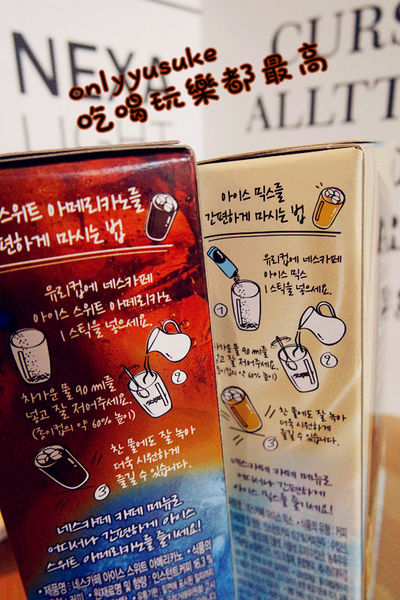 NEXA
CURS
ALLTT
onlyyusuke
吃喝玩樂都最高
스위트 아메리카노를
편하게 마시는 법
유리컵에 네스카페
아이스 스위트 아메리카노
1스틱을 넣으세요.
차가운 물 90 ml를
넣고 잘 저어주세요.
(종이컵의 약 60% 높이)
2
찬 물에도 잘 녹아
더욱 시원하게
즐길 수 있습니다.
3
네스카페 카페 메뉴로
어디서나 간편하게 아이스
스위트 아메리카노를 즐기세요!
•제품명 : 네스카페 아이스 스위트 아메리카노 •식품의
아이스 믹스를
간편하게 마시는 법
유리컵에 네스카페
아이스 믹스
1스틱을 넣으세요.
1
차가운 물 90 ml를
넣고 잘 저어주세요.
(종이컵의 약 60% 높이)
2
찬 물에도 잘 녹아
더욱 시원하게
즐길 수 있습니다.
3
네스카페 카페 메뉴로
어디서나 간편하게
아이스 믹스를 즐기세요!